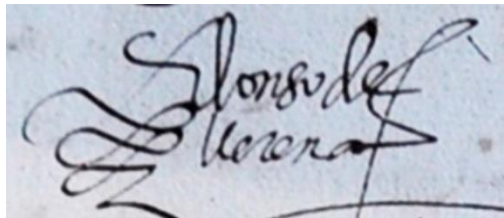 Alonso de
llerena